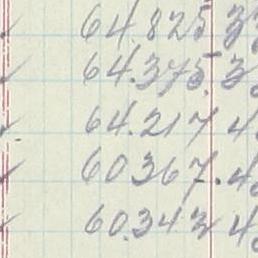 ✓ 64.825 3
✓ 64.375 3
✓ 64.217 4
✓ 60367. 4
✓ 60.343 4